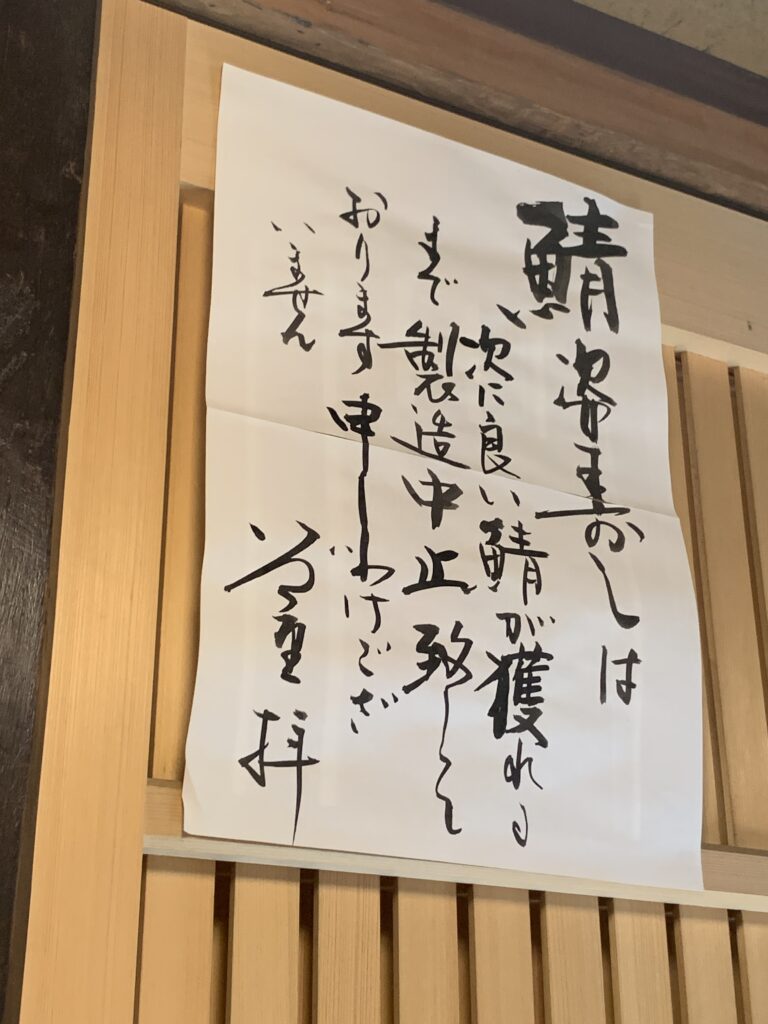 鯖姿寿しは
次に良い鯖が獲れる
まで製造中止致して
おります申しわけござ
いません
いづ重 拝